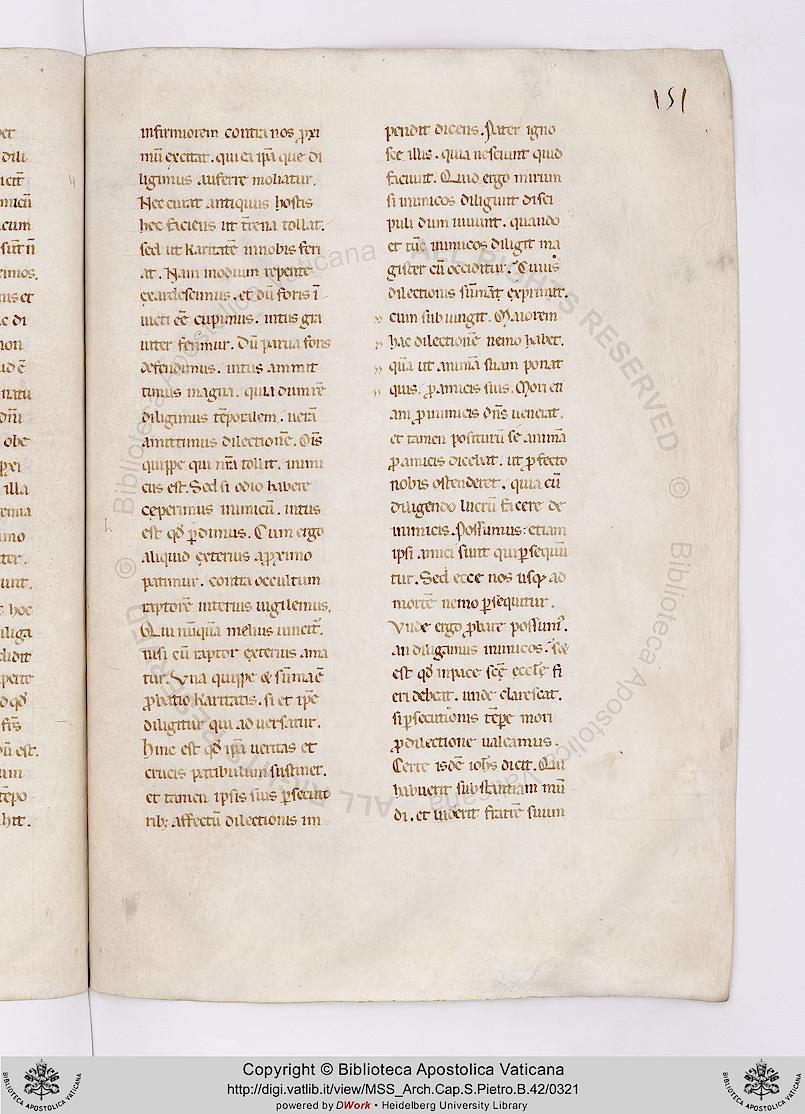 151
infirmiorem contra nos p̱xi
mū excitat. qui ea ip̄a que di
ligimus auferre moliatur.
Nec curat antiquus hostis
hec faciens ut t̄rena tollat.
sed ut karitatē innobis feri
at. Nam inodium repente
exardescimus. et dū foris ī
uicti eē cupimus. intus gra
uiter ferimur. Dū parua foris
defendimus. intus amitt
timus magna. quia dum rē
diligimus tēporalem. uerā
amittimus dilectionē. Oīs
quippe qui nr̄a tollit. inimi
cus est. Sed si odio habere
ceperimus inimicū. intus
est qđ p̱dimus. Cum ergo
aliquid exterius ap̱ximo
patimur. contra occultum
raptorē interius uigilemus.
Qui nūquā melius uincit᷑.
nisi cū raptor exterius ama
tur. Una quippe & sūma ē
p̱batio karitatis. si et ip̄e
diligitur qui aduersatur.
Hinc est qđ ip̄a ueritas et
crucis patibulum sustinet.
et tamen ipsis suis p̱secuto
rib; affectū dilectionis im
pendit dicens. Pater igno
sce illis. quia nesciunt quid
faciunt. Quid ergo mirum
si inimicos diligunt disci
puli dum uiuunt. quando
et tūc inimicos diligit ma
gister cū occiditur. Cuius
dilectionis sūmā exprimit.
cum subiungit. Maiorem
hac dilectionē nemo habet.
quā ut animā suam ponat
quis p̱amicis suis. Mori eti
am p̱inimicis dn̄s uenerat.
et tamen positurū se animā
p̱amicis dicebat. ut p̱fecto
nobis ostenderet. quia cū
diligendo lucrū facere de
inimicis possumus. etiam
ipsi amici sunt qui p̱sequū
tur. Sed ecce nos usq; ad
mortē nemo p̱sequitur.
Unde ergo p̱bare possum᷒.
an diligamus inimicos. Sed
est qđ inpace scē ecclē fi
eri debeat. unde clarescat.
si p̱secutionis tēpe mori
p̱dilectione ualeamus.
Certe isdē ioh̄s dicit. Qui
habuerit substantiam mū
di. et uiderit fratrē suum
Copyright © Biblioteca Apostolica Vaticana
http://digi.vatlib.it/view/MSS_Arch.Cap.S.Pietro.B.42/0321
powered by DWork • Heidelberg University Library